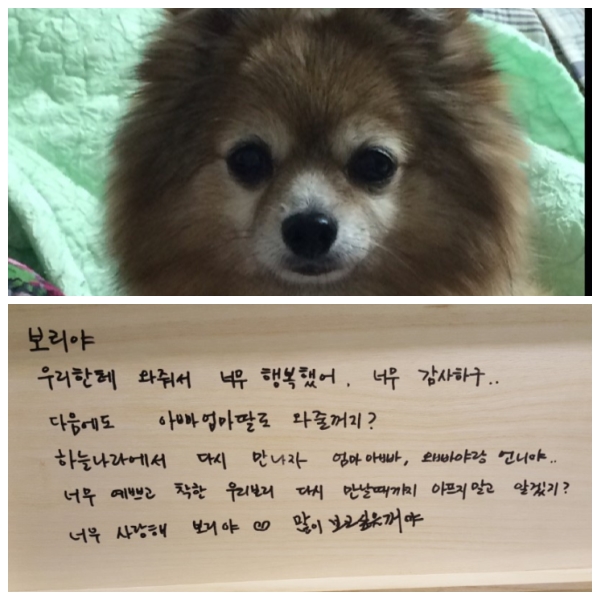 보리야
우리한테 와줘서 너무 행복했어. 너무 감사하구..
다음에도 아빠엄마딸로 와줄꺼지?
하늘나라에서 다시 만나자 엄마아빠, 언니야..
너무 예쁘고 착한 우리보리 다시 만날때까지 아프지말고 알겠지?
너무 사랑해 보리야 ♡ 많이 보고싶을꺼야